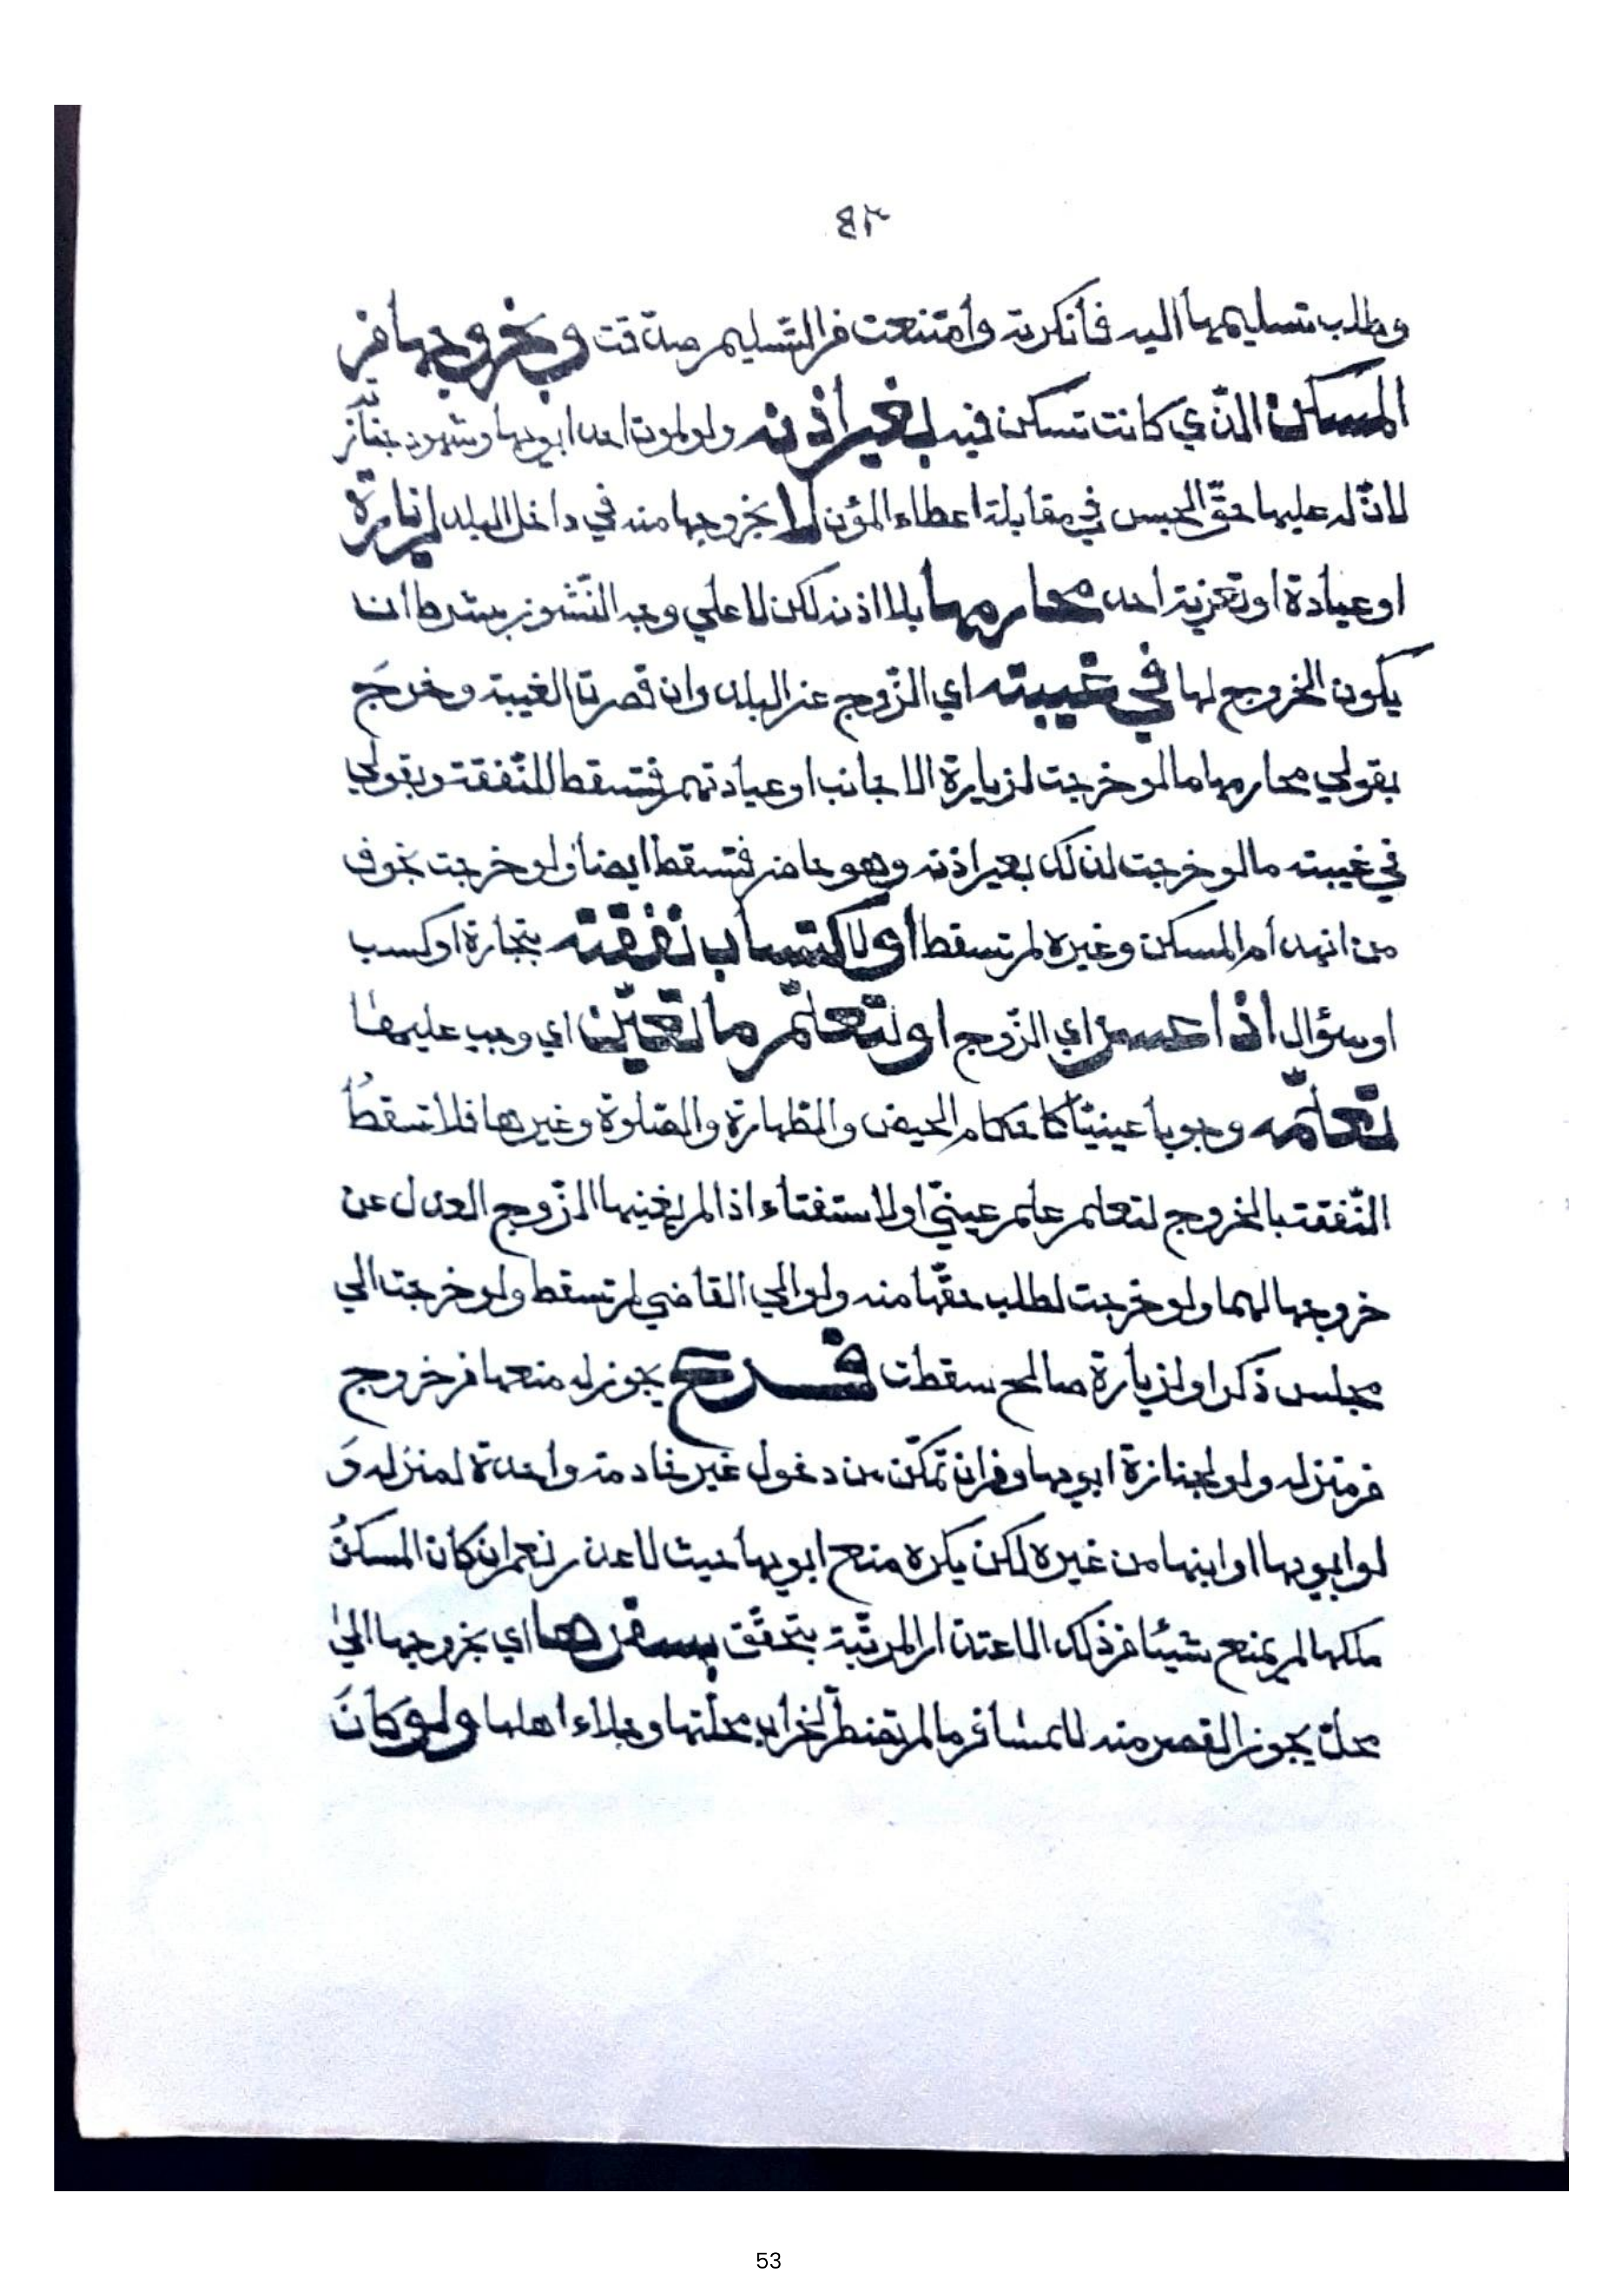 ٤٣
وطلب تسليمها اليه فأنكرته وأمتنعت من التسليم صدّقت وبخروجها من
المسكن الذي كانت تسكن فيه بغير اذنه ولو لموت احد ابويها وشهود جنازته
لانّ له عليها حقّ الحبس في مقابلة اعطاء المؤن لا بخروجها منه في داخل البلد لزيارة
او عيادة او تعزية احد محارمها بلا اذنه لكن لا علي وجه النّشوز بشرط ان
يكون الخروج لها في غيبته اي الزّوج عن البلد وان قصرت الغيبة وخرج
بقولي محارمها ما لو خرجت لزيارة الاجانب او عيادتهم فتسقط للنّفقة وبقولي
في غيبته ما لو خرجت لذلك بغير اذنه وهو حاضر فتسقط ايضا ولو خرجت بخوف
من انهدام المسكن وغيره لم تسقط او لاكتساب نفقته بتجارة او كسب
او سؤال اذا اعسر اي الزّوج او لتعلّم ما تعيّن اي وجب عليها
تعلّمه وجوبا عينيّا كاحكام الحيض والطهارة والصّلوة وغيرها فلا تسقط
النّفقة بالخروج لتعلم علم عينيّ او لاستفتاء اذا لم يغنيها الزّوج العدل عن
خروجها لهما ولو خرجت لطلب حقّها منه ولو الي القاضي لم تسقط ولو خرجت الي
مجلس ذكر او لزيارة صالح سقطت فرع يجوز له منعها من خروج
من منزله ولو لجنازة ابويها ومن ان تمكّن من دخول غير خادمة واحدة لمنزله و
لو ابويها او ابنها من غيره لكن يكره منع ابويها حيث لا عذر نعم ان كان المسكن
ملكها لم يمنع شيئا من ذلك الاعتذار المرتّبة بتحقّق بسفرها اي بخروجها الي
محلّ يجوز القصر منه للمسافر ما لم تضطرّ لخراب محلّتها وجلاء اهلها ولو كان
53